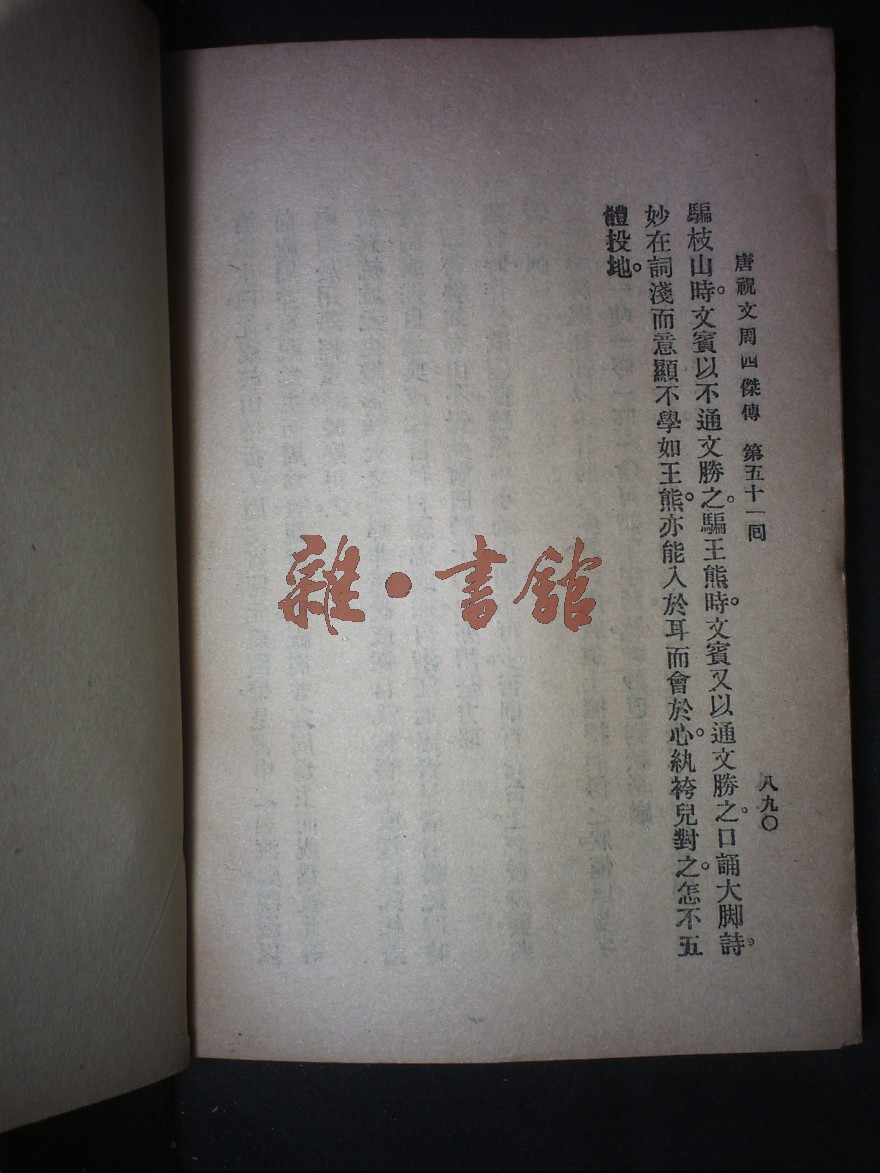 唐祝文周四傑傳 第五十一回
八九〇
騙枝山時。文賓以不通文勝之。騙王熊時。文賓又以通文勝之。口誦大脚詩。
妙在詞淺而意顯不學如王熊。亦能入於耳而會於心。紈袴兒對之。怎不五
體投地。
雜·書館